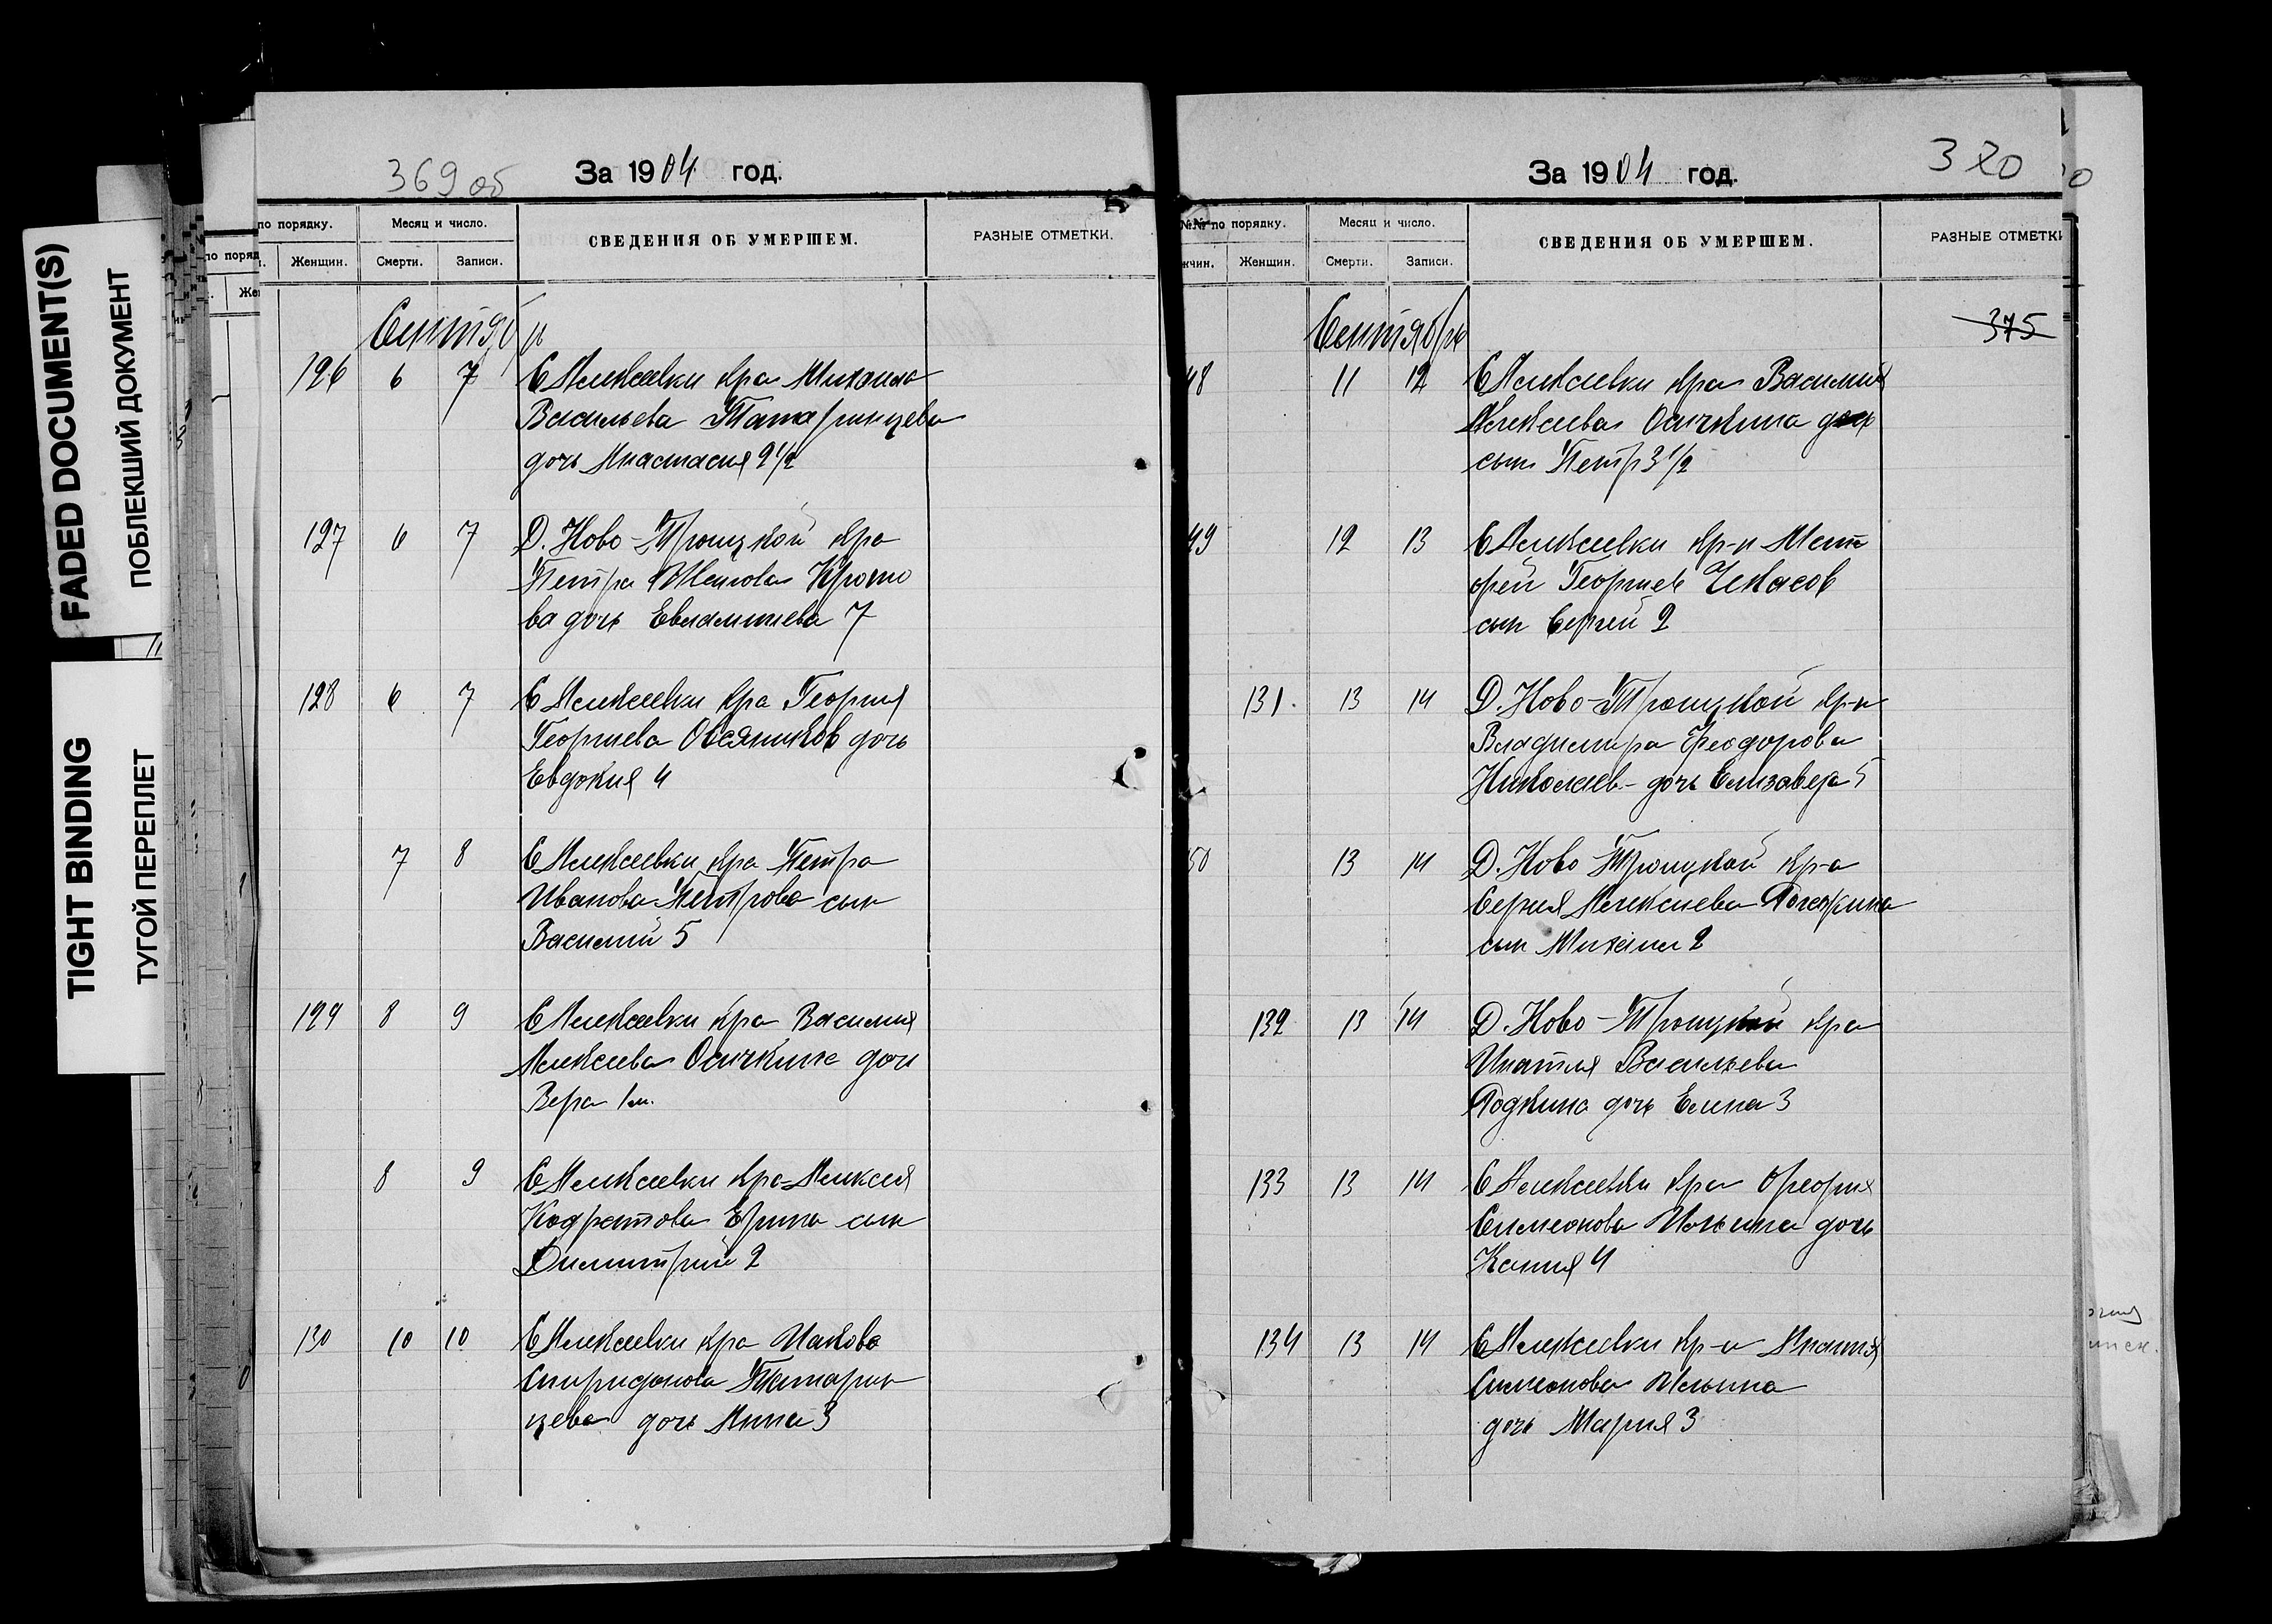 FADED DOCUMENT(S)
ПОБЛЕКШИЙ ДОКУМЕНТ
TIGHT BINDING
ТУГОЙ ПЕРЕПЛЕТ
369 об
За 1904 год.
по порядку.
Месяц и число.
СВЕДЕНИЯ ОБ УМЕРШЕМ.
РАЗНЫЕ ОТМЕТКИ.
Женщин.
Смерти.
Записи.
Сентябрь
126 6 7 С Алексеевки кра Михаила
Васильева Татаринцева
дочь Анастасия 2 1/2
127 6 7 Д. Ново-Троицкой кра
Петра
ва дочь 7
128 6 7 С Алексеевки кра Георгия
Георгиева Овсяников дочь
Евдокия 4
7 8 С Алексеевки кра Петра
Иванова Петрова сын
Василий 5
129 8 9 С Алексеевки кра Василия
Алексеева Осичкина дочь
Вера 1 м.
8 9 С Алексеевки кра Алексея
Кодратова сын
Димитрий 2
130 10 10 С Алексеевки кра Иакова
Спиридонова Татарин
цева дочь Анна 3
За 1904 год.
370
№№ по порядку.
Месяц и число.
СВЕДЕНИЯ ОБ УМЕРШЕМ.
РАЗНЫЕ ОТМЕТКИ
жчин.
Женщин.
Смерти.
Записи.
Сентябрь
375
48 11 12 С Алексеевки кра Василия
Алексеева Осичкина
сын Петр 3 1/2
49 12 13 С Алексеевки кр-н
Георгиев Чекасов
сын Сергей 2
131. 13 14 Д. Ново-Троицкой кр-н
Владимира Феодорова
Николаев- дочь Елизавета 5
50 13 14 Д. Ново Троицкой кр-а
Сергия Алексиева
сын Михаил 2
132 13 14 Д. Ново-Троицкой кра
Игнатия Васильева
Родкина дочь Елена 3
133 13 14 С Алексеевки кра
Симеонова Ильина дочь
4
134 13 14 С Алексеевки кр-а
Симеонова Ильина
дочь Мария 3